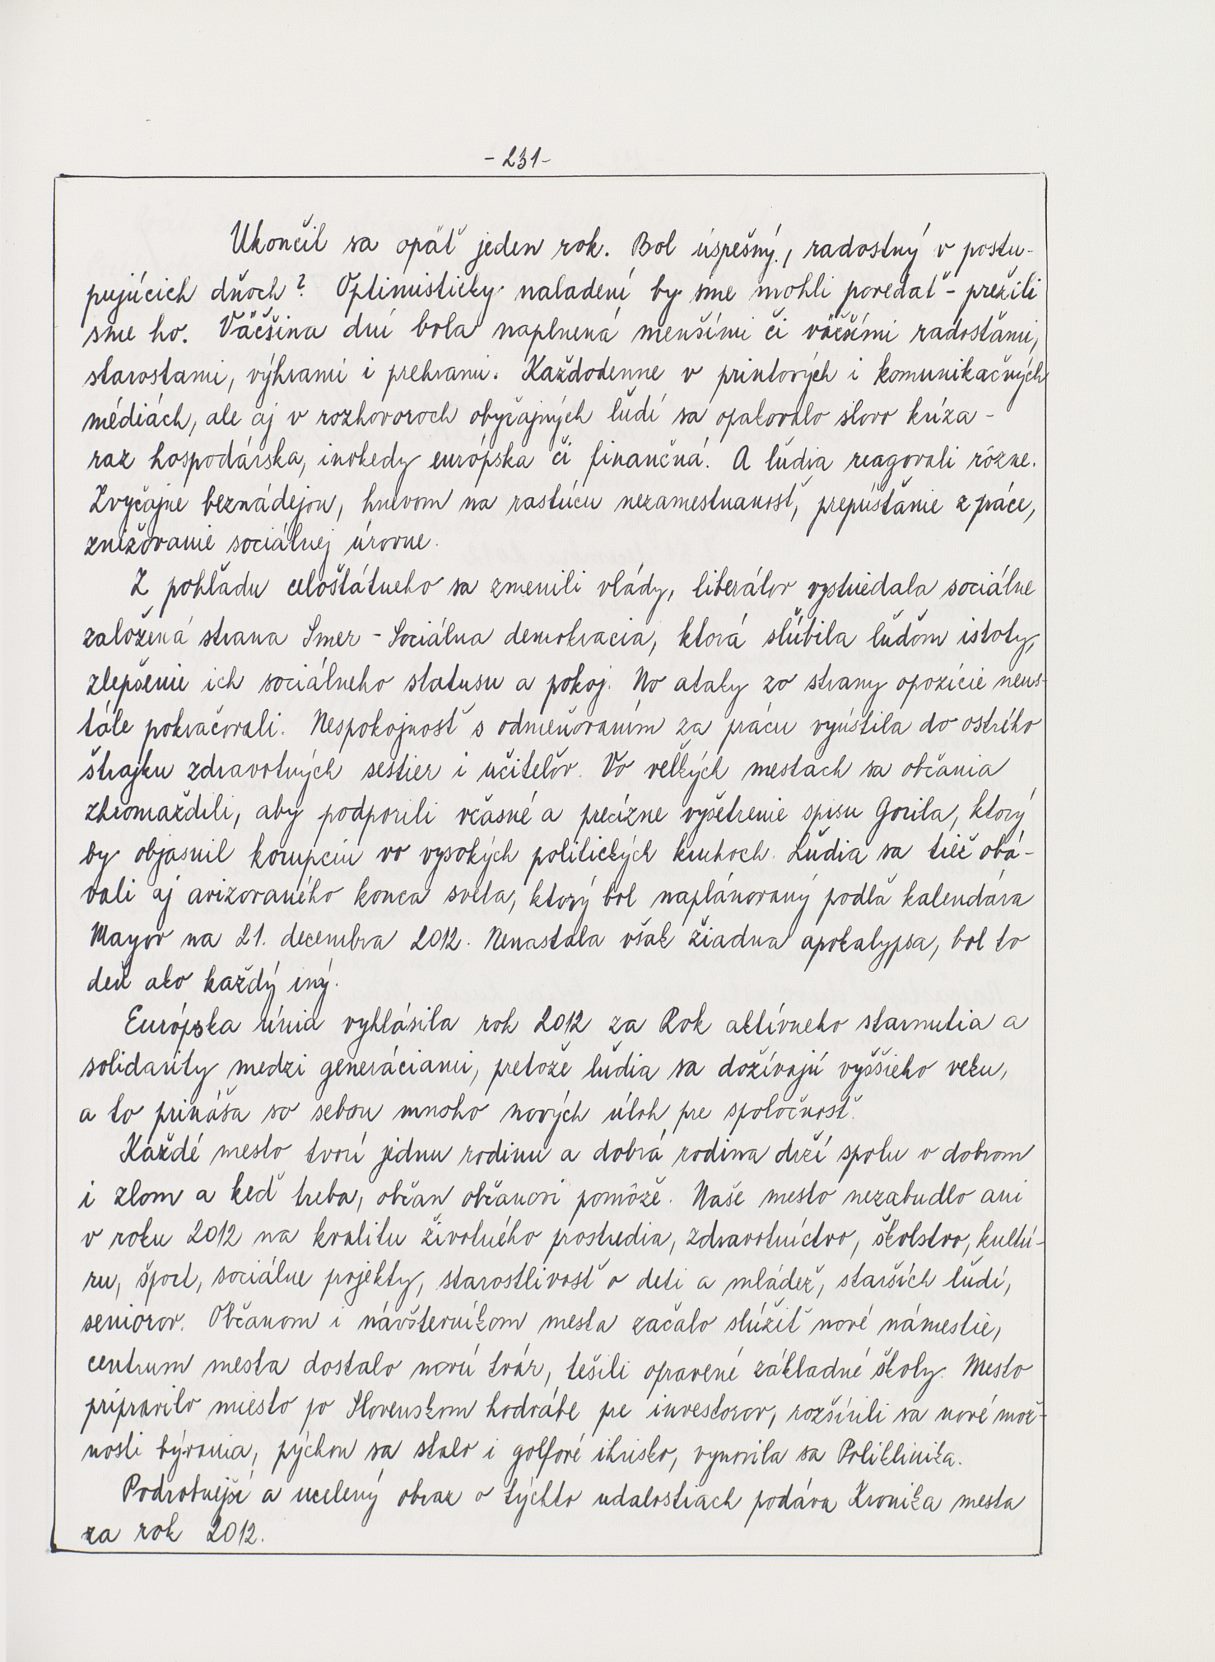 - 231 -
Ukončil sa opäť jeden rok. Bol úspešný, radostný v postu-
pujúcich dňoch? Optimisticky naladení by sme mohli povedať - prežili
sme ho. Väčšina dní bola naplnená menšími či väčšími radosťami,
starosťami, výhrami i prehrami. Každodenne v printových i komunikačných
médiách, ale aj v rozhovoroch obyčajných ľudí sa opakovalo slovo kríza -
raz hospodárska, inokedy európska či finančná. A ľudia reagovali rôzne.
Zvyčajne beznádejou, hnevom na rastúcu nezamestnanosť, prepúšťanie z práce,
znižovanie sociálnej úrovne.
Z pohľadu celoštátneho sa zmenili vlády, liberálov vystriedala sociálne
založená strana Smer - Sociálna demokracia, ktorá sľúbila ľuďom istoty,
zlepšenie ich sociálneho statusu a pokoj. No ataky zo strany opozície neus-
tále pokračovali. Nespokojnosť s odmeňovaním za prácu vyústila do ostrého
štrajku zdravotných sestier i učiteľov. Vo veľkých mestach sa občania
zhromaždili, aby podporili včasné a precízne vyšetrenie spisu Gorila, ktorý
by objasnil korupciu vo vysokých politických kruhoch. Ľudia sa tiež obá-
vali aj avizovaného konca sveta, ktorý bol naplánovaný podľa kalendára
Mayov na 21. decembra 2012. Nenastala však žiadna apokalypsa, bol to
deň ako každý iný.
Európska únia vyhlásila rok 2012 za Rok aktívneho starnutia a
solidarity medzi generáciami, pretože ľudia sa dožívajú vyššieho veku,
a to prináša so sebou mnoho nových úloh pre spoločnosť.
Každé mesto tvorí jednu rodinu a dobrá rodina drží spolu v dobrom
i zlom a keď treba, občan občanovi pomôže. Naše mesto nezabudlo ani
v roku 2012 na kvalitu životného prostredia, zdravotníctvo, školstvo, kultú-
ru, šport, sociálne projekty, starostlivosť o deti a mládež, starších ľudí,
seniorov. Občanom i návštevníkom mesta začalo slúžiť nové námestie,
centrum mesta dostalo novú tvár, tešili opravené základné školy. Mesto
pripravilo miesto po Slovenskom hodvábe pre investorov, rozšírili sa nové mož-
nosti bývania, pýchou sa stalo i golfové ihrisko, vynovila sa Poliklinika.
Podrobnejší a ucelený obraz o týchto udalostiach podáva Kronika mesta
za rok 2012.